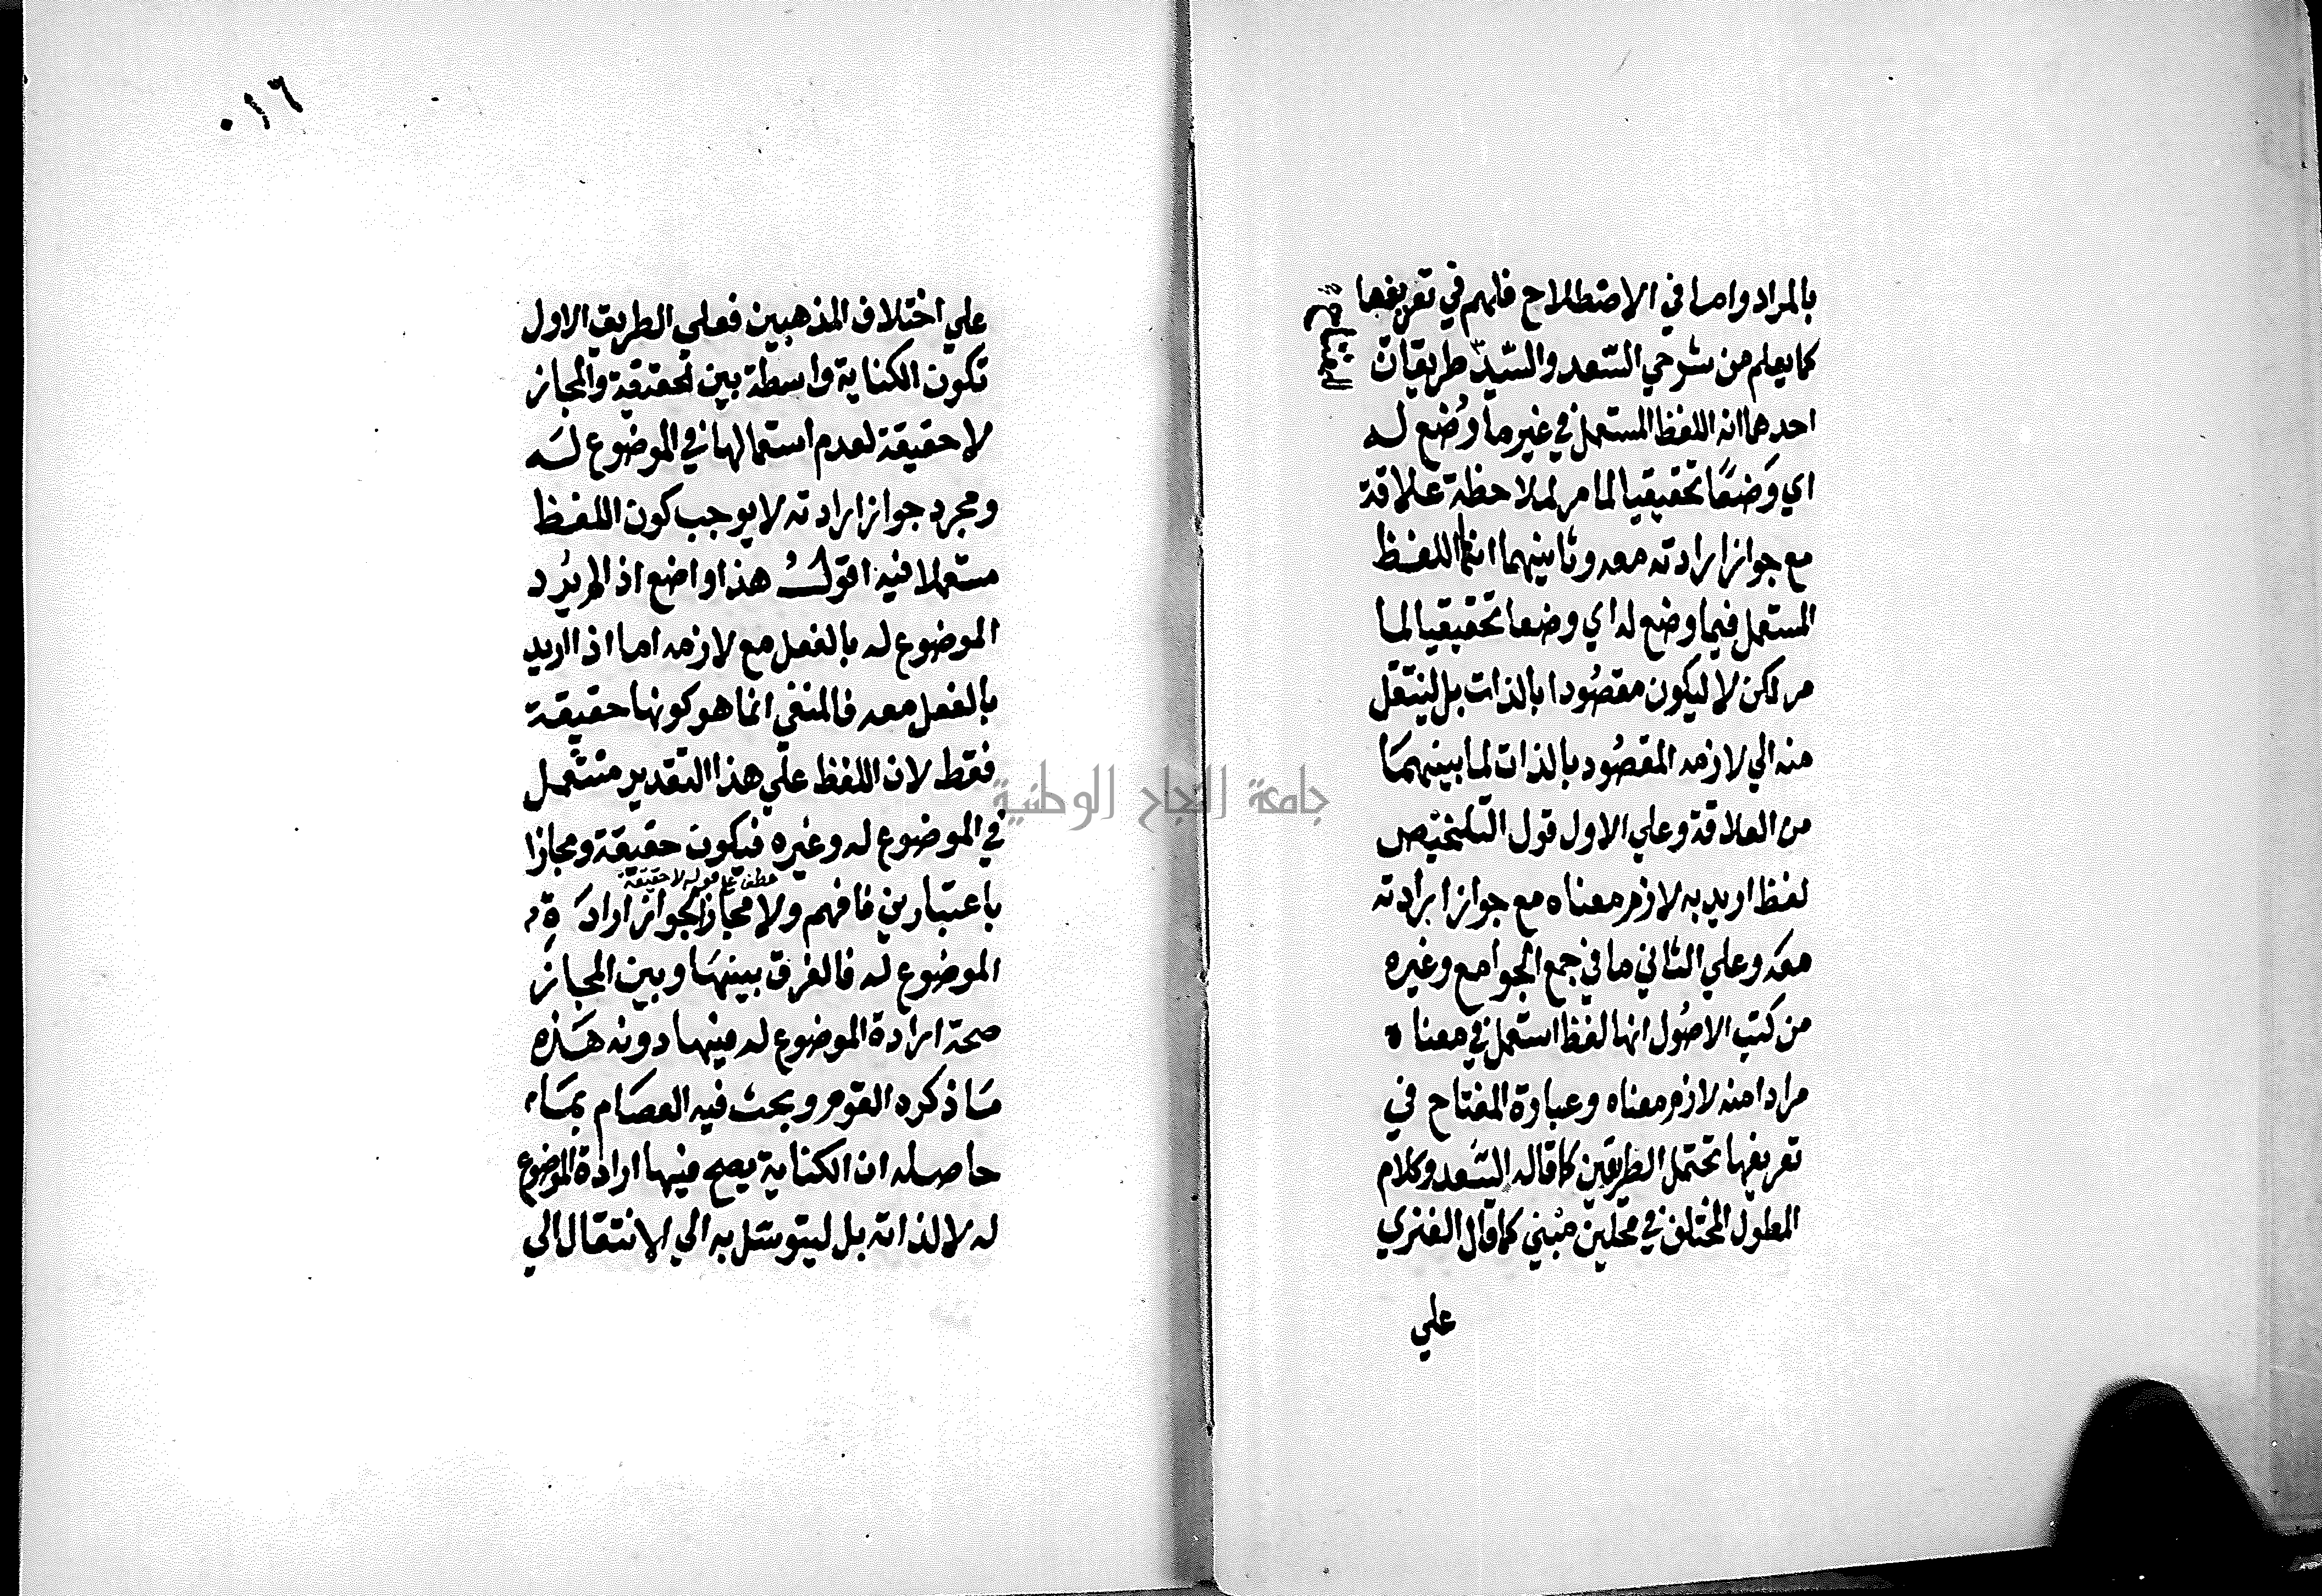 بالمراد واما في الاصطلاح فلهم في تعريفها
كما يعلم من شرحي السّعد والسّيّد طريقان
احدهما انه اللفظ المستعمل في غير ما وُضع له
اي وَضعًا تحقيقيا لما مر لملاحظة علاقة
مع جواز ارادته معه وثانيهما انها اللفظ
المستعمل فيما وضع له اي وضعا تحقيقيا لما
مر لكن لا ليكون مقصُودا بالذات بل لينتقل
منه الي لازمه المقصُود بالذات لما بينهمَا
من العلاقة وعلي الاول قول التلخيص
لفظ اريد به لازم معناه مع جواز ارادته
معَه وعلي الثاني ما في جمع الجوامع وغيره
من كتب الاصُول انها لفظ استعمل في معناه
مرادا منه لازم معناه وعبارة المفتاح في
تعريفها تحتمل الطريقين كما قاله السّعد وكلام
المطول المختلف في محلين مبني كما قال الفنري
علي
٠١٦
علي اختلاف المذهبين فعلي الطريق الاول
تكون الكناية واسطة بين الحقيقة والمجاز
لا حقيقة لعدم استعمالها في الموضوع لَه
ومجرد جواز ارادته لا يوجب كون اللفظ
مستعملا فيه اقولُ هذا واضع اذ الم يُرد
الموضوع له بالفعل مع لازمه اما اذا اريد
بالفعل معه فالمنفي انما هو كونها حقيقة
فقط لان اللفظ علي هذا التقدير مستعمل
في الموضوع له وغيره فيكون حقيقة ومجازا
عطف علي قوله لا حقيقة
باعتبارين فافهم ولا مجازا لجواز ارادَة
الموضوع له فالفرق بينهَا وبين المجاز
صحة ارادة الموضوع له فيها دونه هَذه
مَا ذكره القوم وبحث فيه العصَام بمَا
حاصله ان الكناية يصح فيها ارادة الموضوع
له لا لذاته بل ليتوسّل به الي الانتقال الي
جامعة النجاح الوطنية